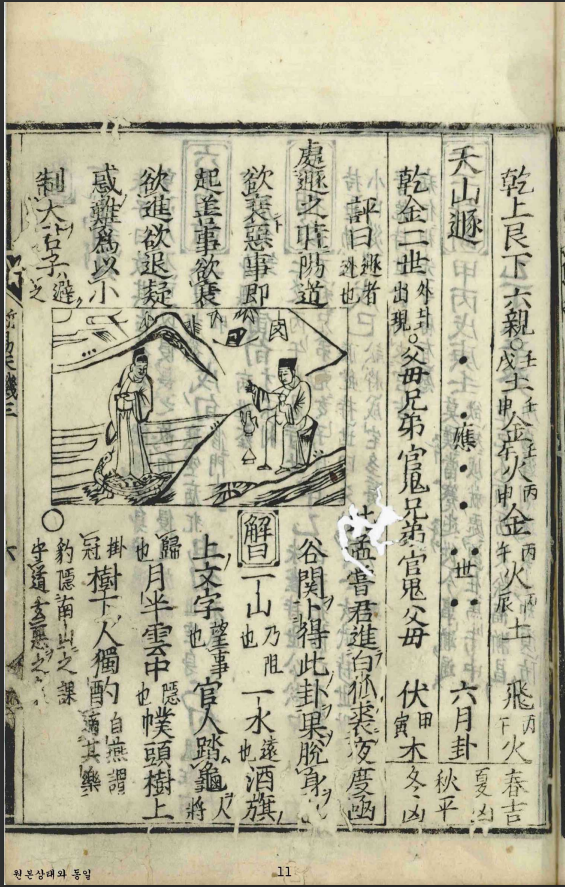 乾上艮下六親○壬戌土 壬申金 壬午火 丙申金 丙午火 丙辰土 飛丙午火 春吉
夏凶
天山遯 應 世 六月卦
秋平
乾金二世 外卦出現○父母兄弟官鬼兄弟官鬼父母 伏甲寅木 冬凶
評曰 遯者退也
孟嘗君進白狐裘夜度函
處遯之時陽道
谷關卜得此卦果脫身
欲衰惡事即
解曰 一山 乃阻也 一水 遠也 酒旗
起善事欲衰
上文字 望事也 官人踏龜 人將
欲進欲退疑
歸也 月半雲中 隱也 幞頭樹上
惑難為以小
掛冠 樹下人獨酌 自無謂
制大君子 避之
豹隱南山之課
守道去惡之
六
11
원본상태와 동일